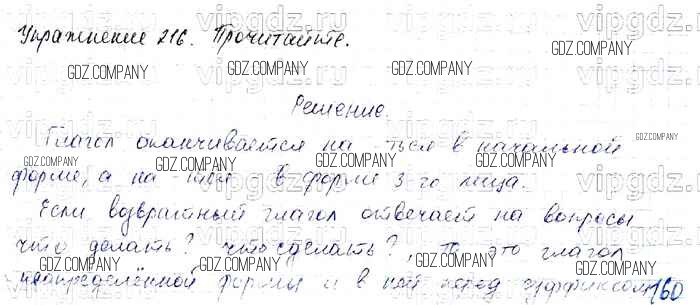 Упражнение 216. Прочитайте.
Решение.
Глагол оканчивается на ться в начальной
форме, а на тся в форме 3 го лица.
Если возвратный глагол отвечает на вопросы
что делать? что сделать?, то это глагол
неопределённой формы и в ней перед суффиксом
160
GDZ.COMPANY
vipgdz.ru